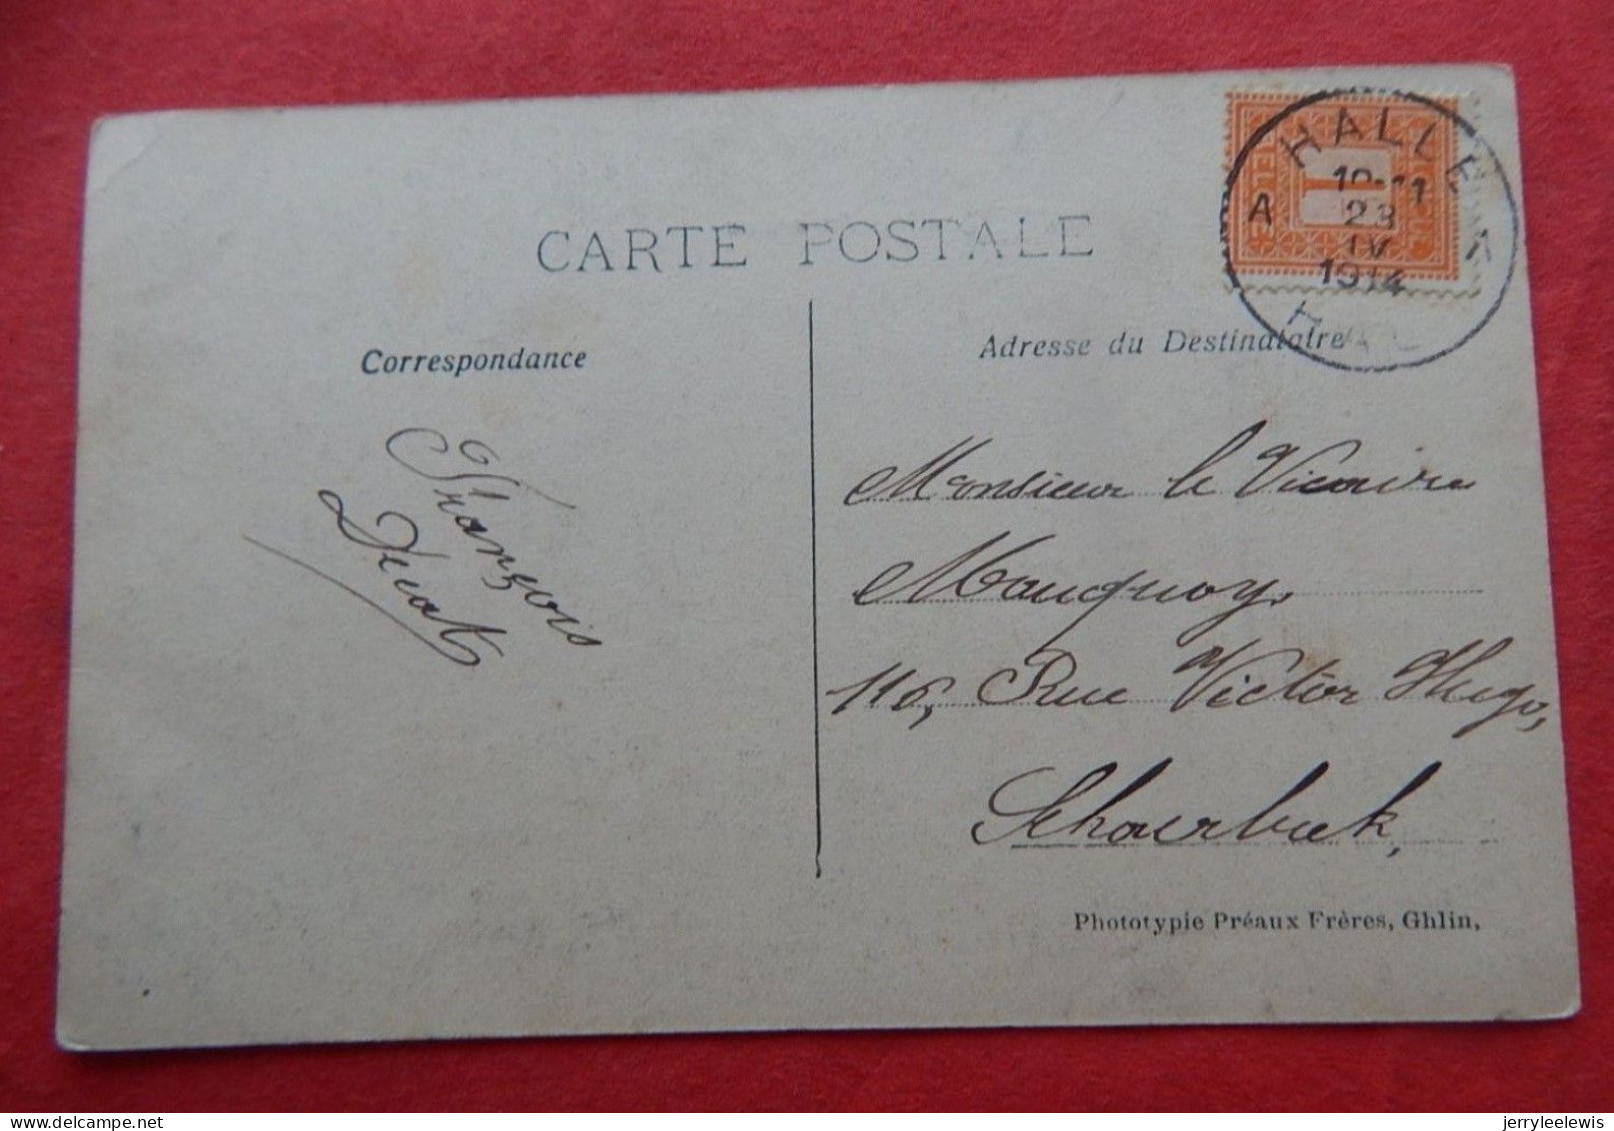 CARTE POSTALE
Correspondance
Adresse du Destinataire
HALLE
10-11
23
IV
1914
A A
HAL
1
François
Decat
Monsieur le Vicaire
Mauquoy.
116, Rue Victor Hugo,
Schaerbeek,
Phototypie Préaux Frères, Ghlin,
jerryleelewis